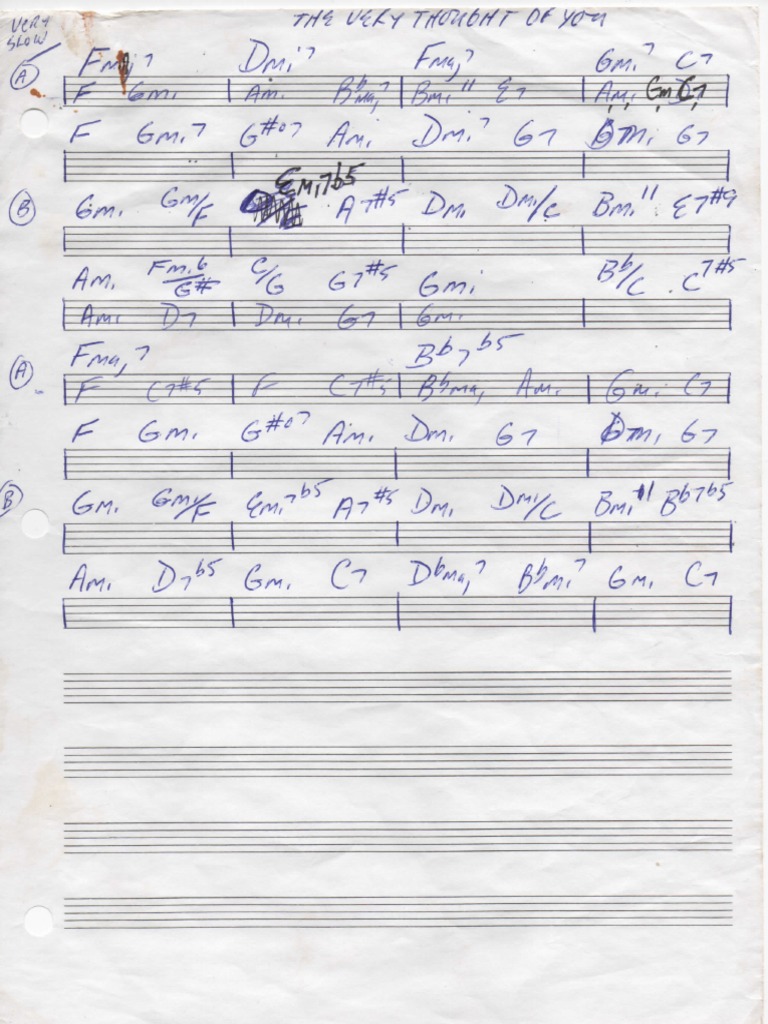 THE VERY THOUGHT OF YOU
VERY
SLOW
Fma7 Dmi7 Fma7 Gmi7 C7
A F Gmi Ami Bbma7 Bmi11 E7 Ami Gmi C7
F Gmi7 G#o7 Ami Dmi7 G7 Dmi G7
Emi7b5
B Gmi Gm/F A7#5 Dmi Dmi/C Bmi11 E7#9
Ami Fmi6/G# C/G G7#5 Gmi Bb/C C7#5
Ami D7 Dmi G7 Gmi
Fma7 Bb7b5
A F C7#5 F C7#5 Bbma7 Ami Gmi C7
F Gmi G#o7 Ami Dmi G7 G7
B Gmi Gmi/F Emi7b5 A7#5 Dmi Dmi/C Bmi11 Bb7b5
Ami D7b5 Gmi C7 Dbma7 Bbmi7 Gmi C7